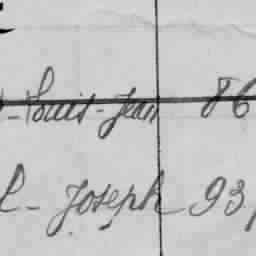 -Louis-Jean 86
l-Joseph 93